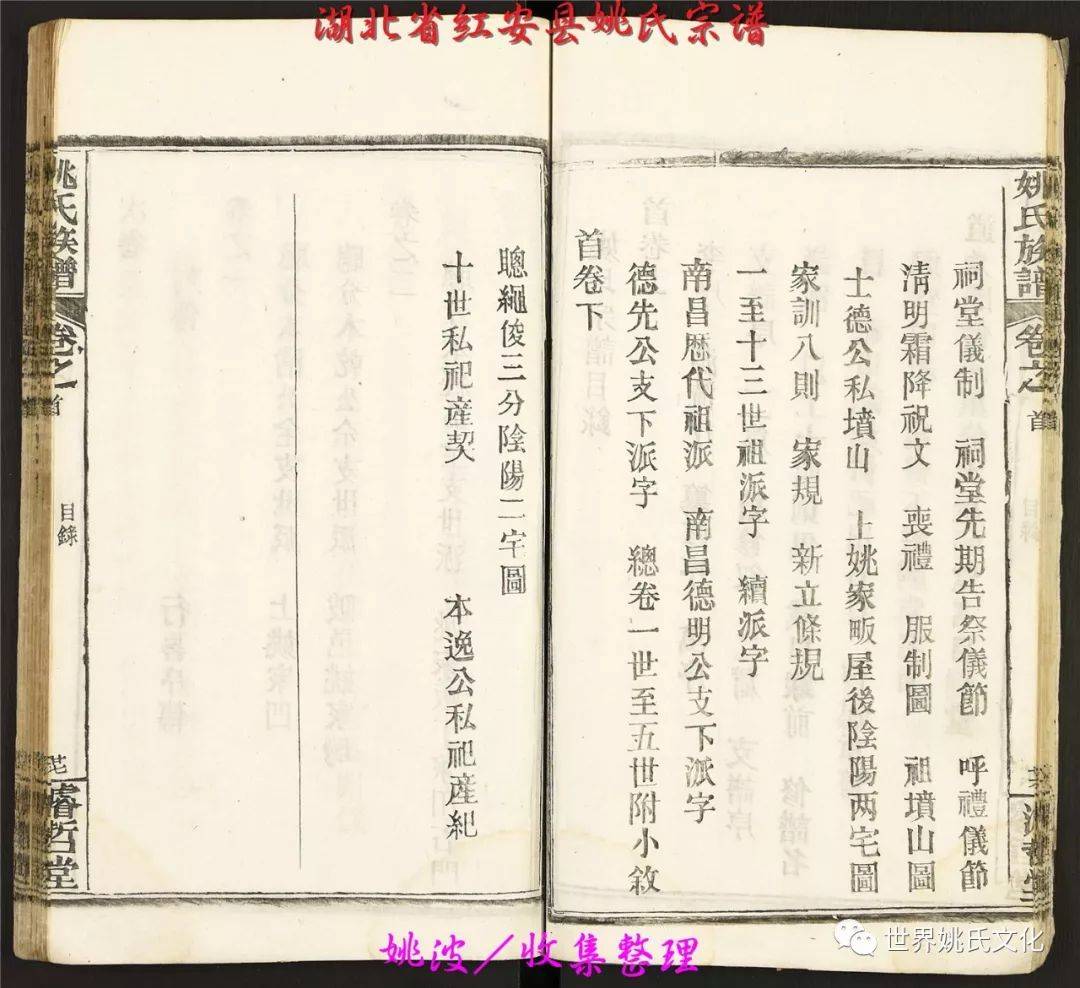 湖北省红安县姚氏宗谱
姚氏族譜
卷之
首
目錄
祠堂儀制 祠堂先期告祭儀節 呼禮儀節
淸明霜降祝文 喪禮 服制圖 祖墳山圖
士德公私墳山 上姚家畈屋後陰陽两宅圖
家訓八則 家規 新立條規
一至十三世祖派字 續派字
南昌歷代祖派 南昌德明公支下派字
德先公支下派字 總卷一世至五世附小敘
首卷下
聰繩俊三分陰陽二宅圖
十世私祀產契 本逸公私祀產紀
姚氏族譜
卷之
首
目錄
睿哲堂
姚波／收集整理
世界姚氏文化